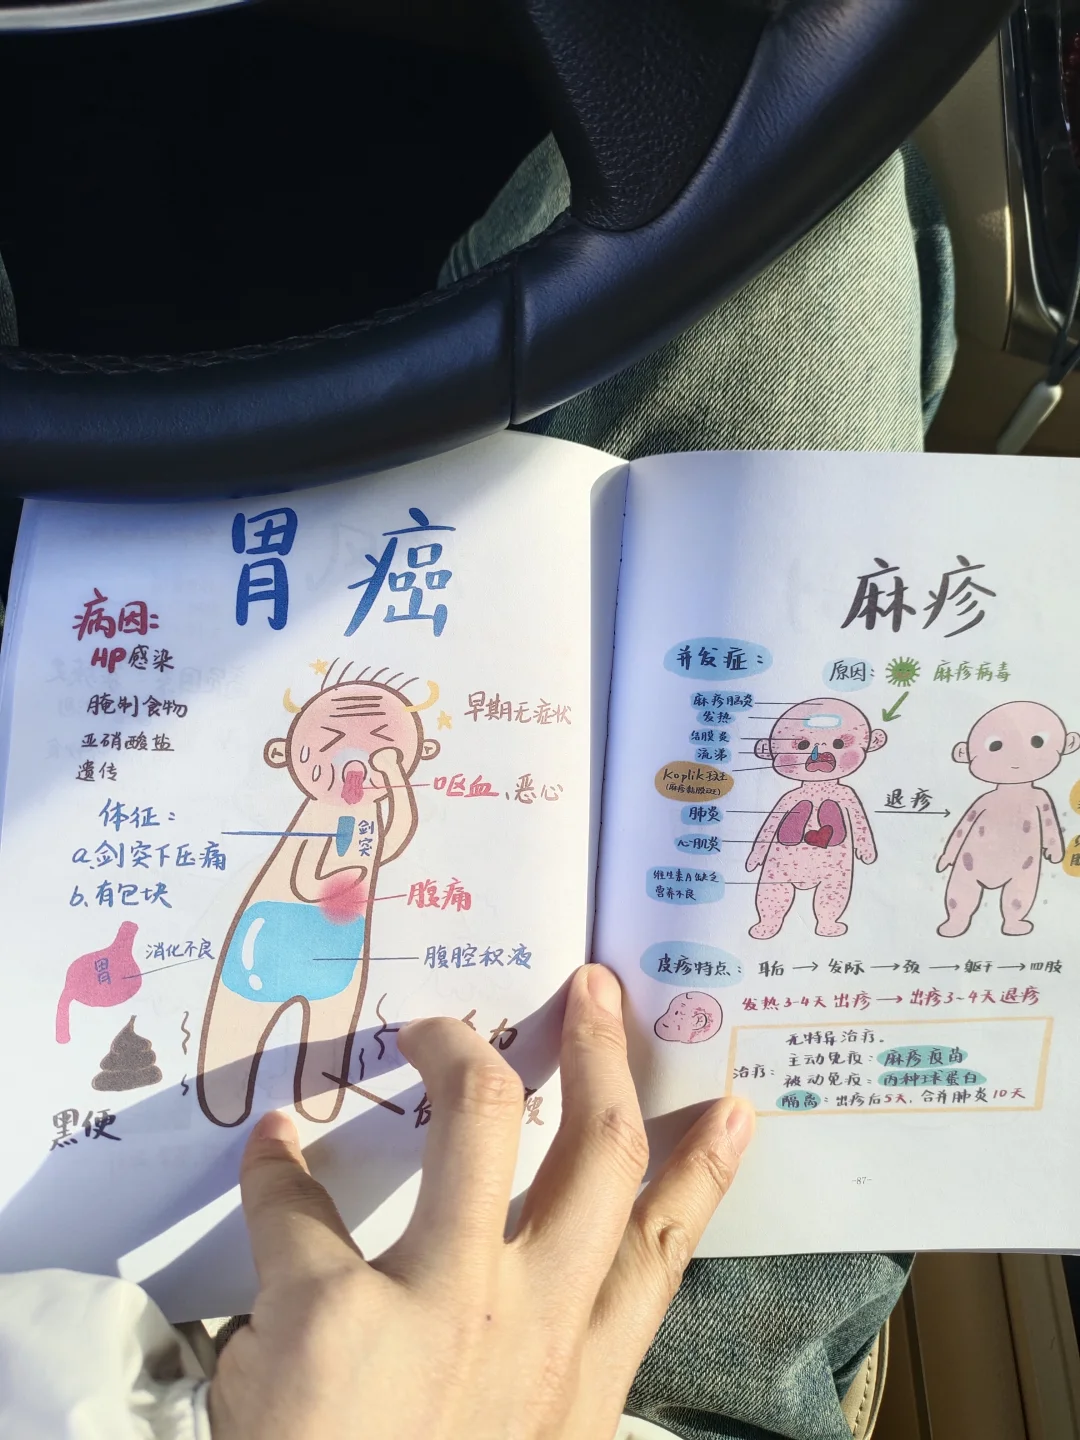 胃癌
病因:
HP感染
腌制食物
亚硝酸盐
遗传
体征:
a.剑突下压痛
b.有包块
早期无症状
呕血、恶心
剑突
腹痛
腹腔积液
胃
消化不良
黑便
力
瘦
麻疹
并发症:
原因:
麻疹病毒
麻疹脑炎
发热
结膜炎
流涕
Koplik斑
(麻疹黏膜斑)
肺炎
心肌炎
维生素A缺乏
营养不良
退疹
皮疹特点: 耳后→发际→颈→躯干→四肢
发热3-4天出疹→出疹3~4天退疹
治疗:
无特异治疗.
主动免疫: 麻疹疫苗
被动免疫: 丙种球蛋白
隔离: 出疹后5天, 合并肺炎10天
-87-